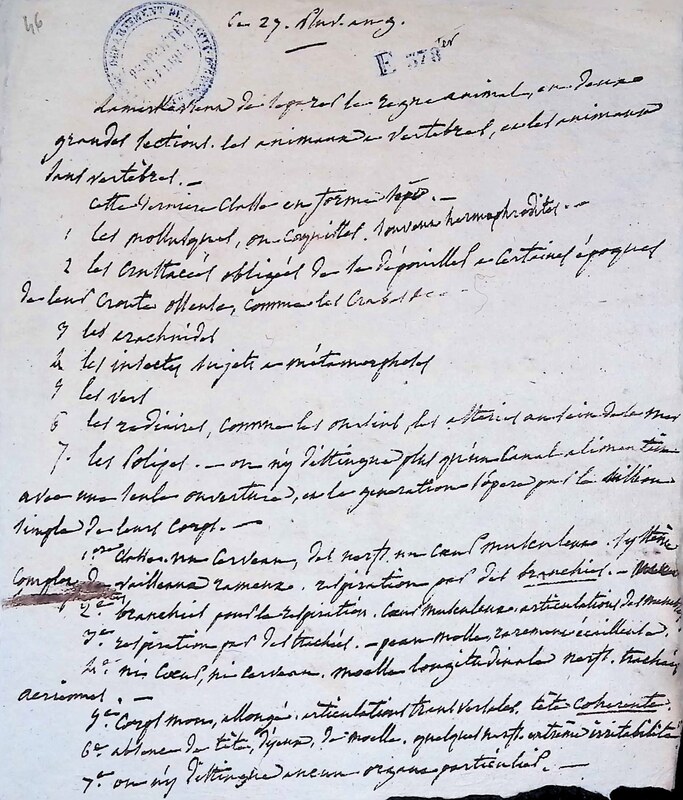 46
DÉPARTEMENT DE LA
PROPRIÉTÉ PUBLIQUE
Le 29. Pluv. an 9.
E 378 ter
Lamark vient de séparer le regne animal, en deux
grandes sections. les animaux a vertebres, et les animaux
sans vertèbres. —
cette derniere classe en forme sept. —
1 les mollusques, ou coquilles. souvent hermaphrodites. —
2 les crustacés obligés de se dépouiller a certaines époques
de leur croute, comme les crabes &c. —
3 les arachnides
4 les insectes sujets a métamorphoses
5 les vers
6 les radiaires, comme les oursins, les asteries au sein de la mer
7. les Polipes. — on n'y distingue plus qu'un canal alimentaire
avec une seule ouverture, et la generation s'opere par la scission
simple de leurs corps. —
1ere classe. un cerveau, des nerfs. un cœur musculeux. système
complet de vaisseaux rameux. respiration par des branchies. —
2e. branchies pour la respiration. cœur musculeux. articulations des membres
3e. respiration par des trachées. — peau molle, rarement écailleuse.
4e. ni cœur, ni cerveau. moelle longitudinale nerfs. trachées
aeriennes. —
5e. Corps mou, allongé. articulations transversales. tête cohérente.
6e. absence de tête, d'yeux, de moelle. quelques nerfs. extrême irritabilité
7e. on n'y distingue aucun organe particulier. —